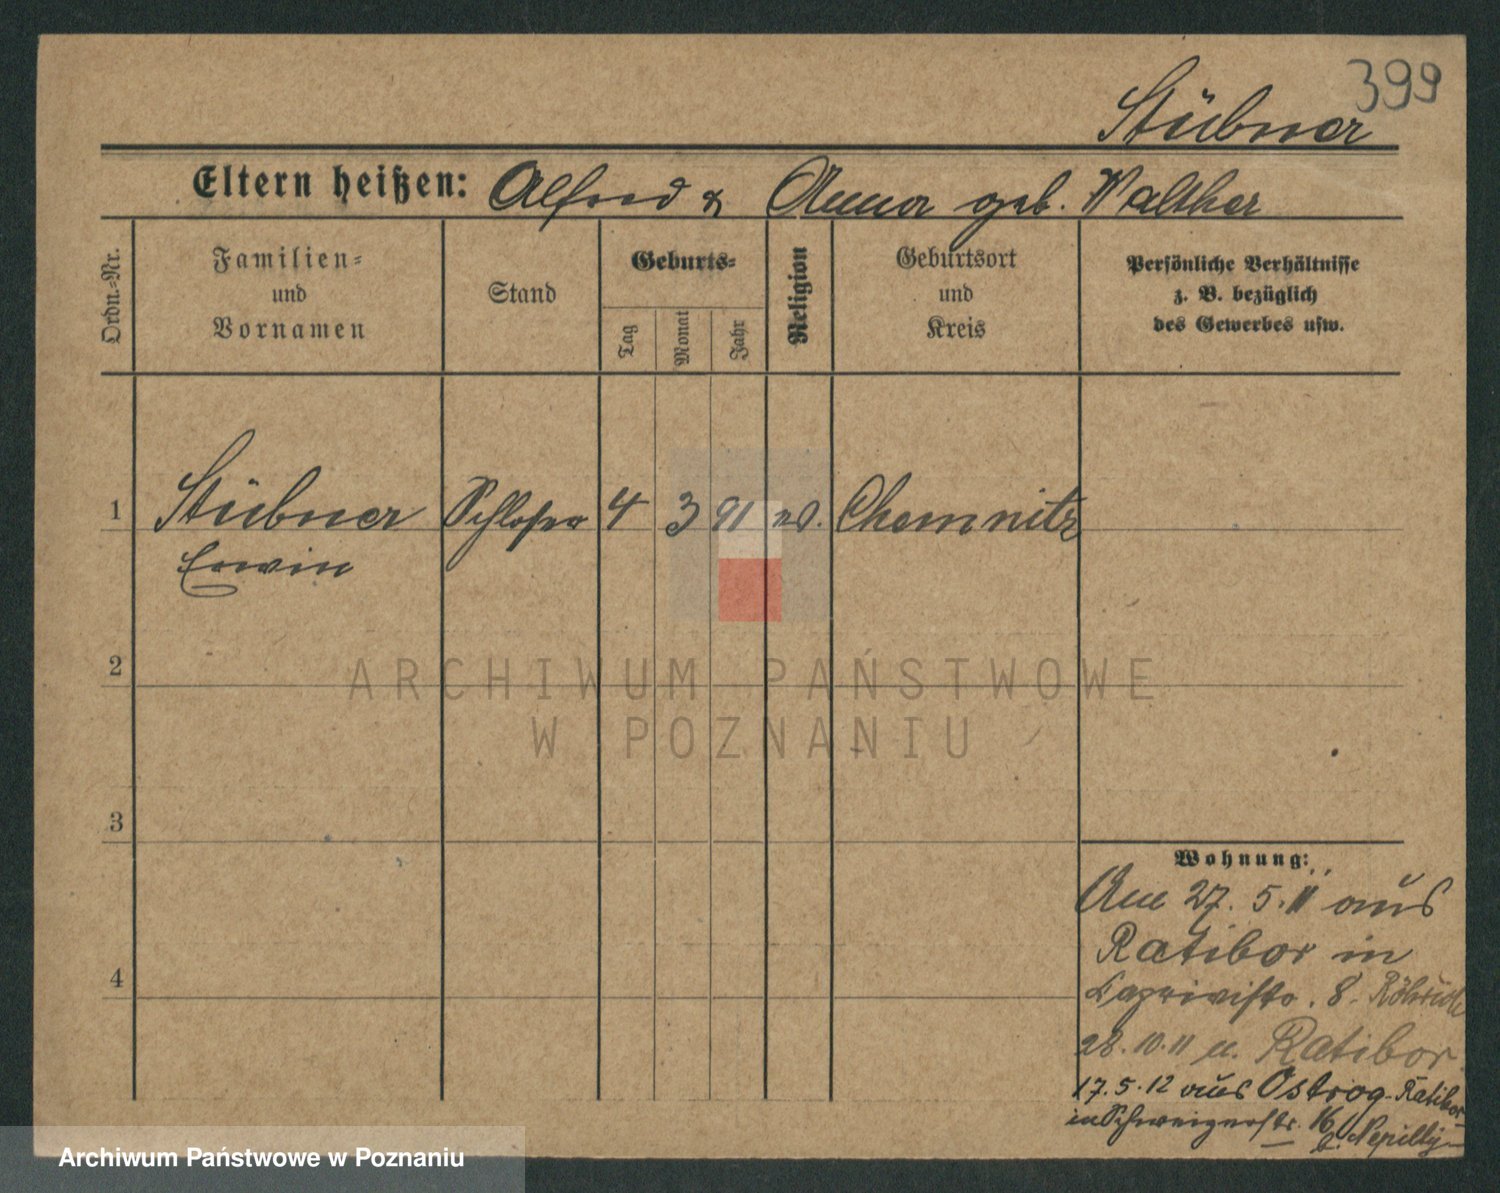 399
Stübner
Eltern heißen: Alfred & Anna geb. Walther
Ordn.-Nr.
Familien-
und
Vornamen
Stand
Geburts-
Tag
Monat
Jahr
Religion
Geburtsort
und
Kreis
Persönliche Verhältnisse
z. B. bezüglich
des Gewerbes usw.
1 Stübner Schlosser 4 3 91 ev. Chemnitz
Erwin
2
ARCHIWUM PAŃSTWOWE
W POZNANIU
3
Wohnung:
Am 27. 5. 11 aus
Ratibor in
Caprivistr. 8.
28. 10. 11 n. Ratibor
17. 5. 12 aus Ostrog-Ratibor
in 16
b.
4
Archiwum Państwowe w Poznaniu